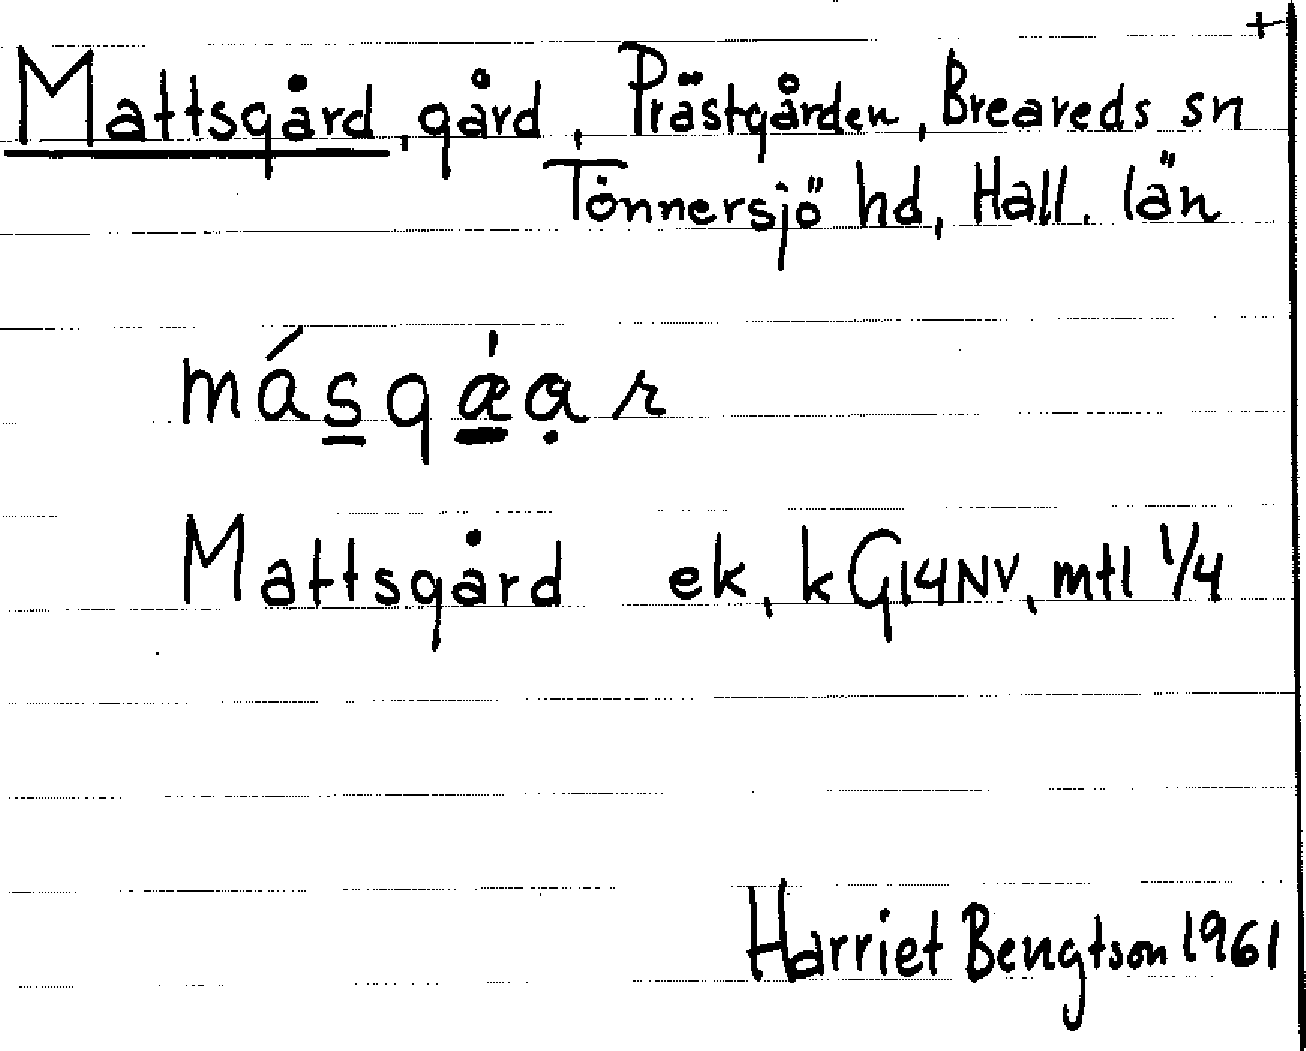 +
Mattsgård, gård, Prästgården, Breareds sn
Tönnersjö hd, Hall. län
másgǽar
Mattsgård ek, kG14NV, mtl 1/4
Harriet Bengtson 1961